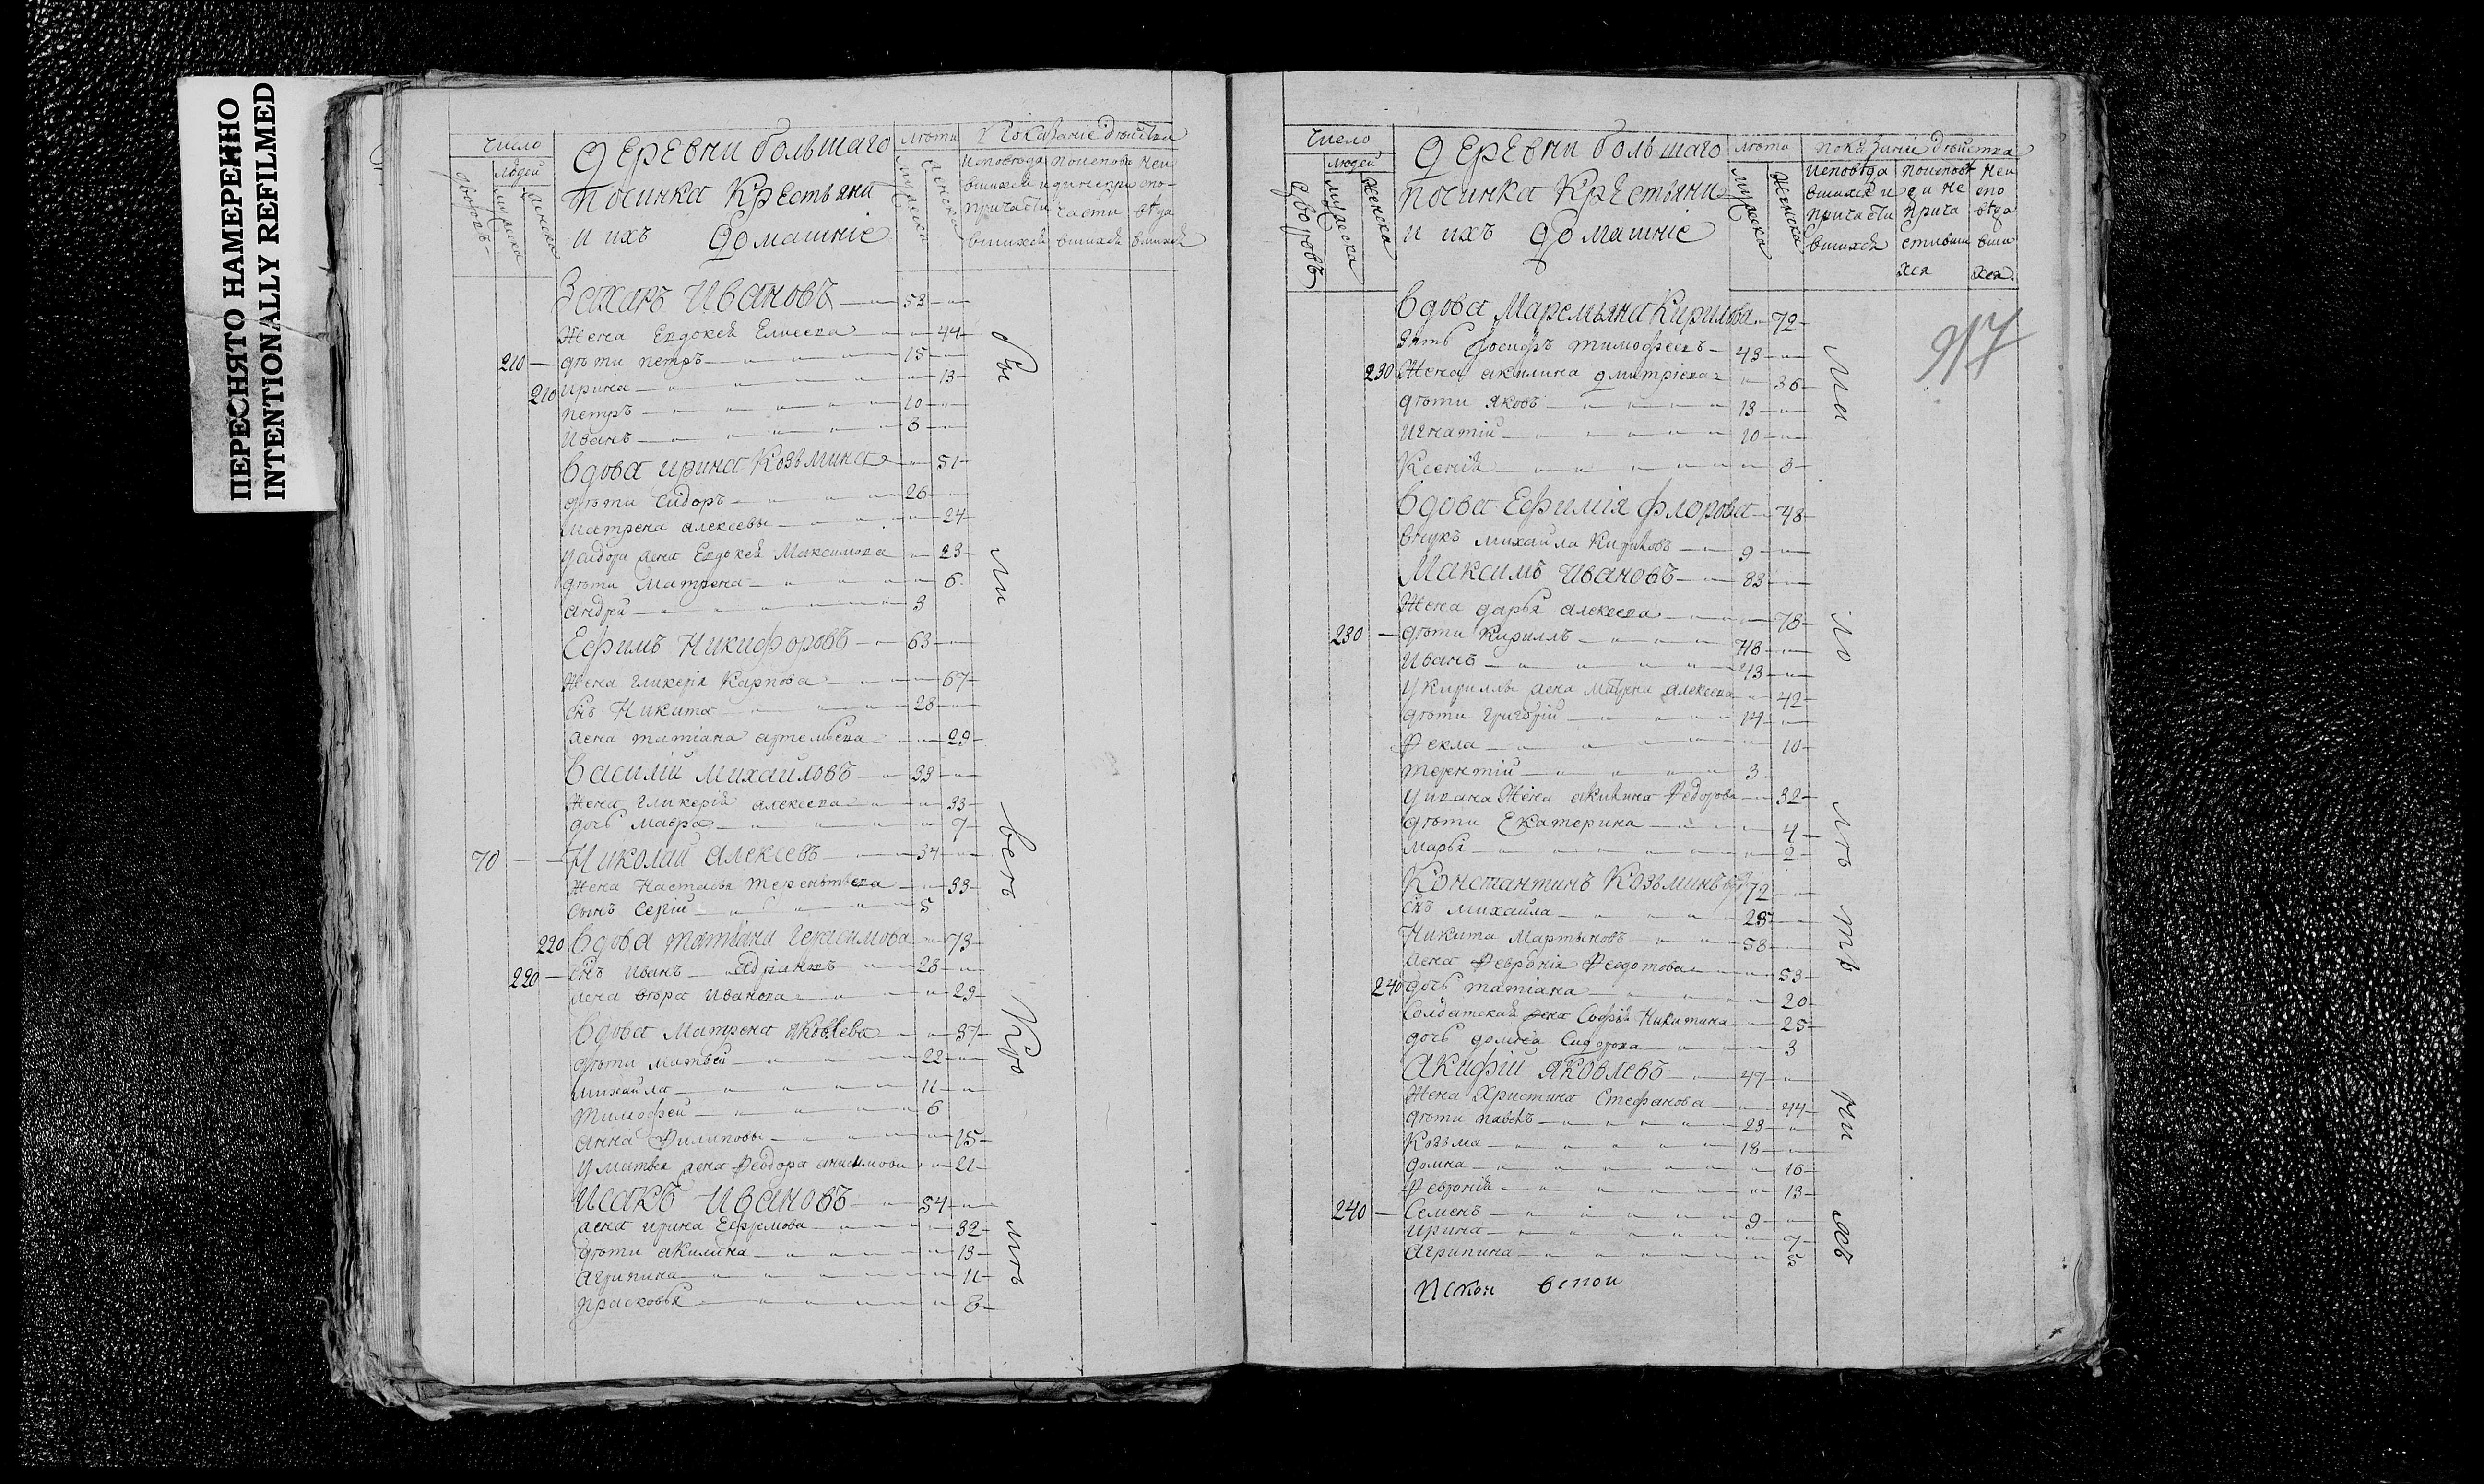 ПЕРЕСНЯТО НАМЕРЕННО
INTENTIONALLY REFILMED
Число
Людей
дворовъ
мужеска
женска
Деревни большаго
посинка Крестьяни
и ихъ домашніе
Лѣта
мужеска
женска
Показаніе дѣйства
исповѣда вшихся и причасти вшихся
поисповѣ ди непри части вшихся
неи спо вѣда вшихся
Захаръ Ивановъ 53
Жена Евдокея Елисеева 44
210 дѣти петръ 15
210 ирина 13
петръ 10
Иванъ 8
Вдова ирина Козьмина 51
дѣти Сидоръ 26
матрена алексеевы 24
у сидора жена Евдокея Максимова 23
дѣти матрена 6
андрей 3
Ефимъ Никифоровъ 63
Жена гликерія Карпова 67
снъ Никита 28
жена татіана артемьева 29
Василій михайловъ 33
Жена гликерія алексеева 33
дочь мавра 7
70 Николай алексеевъ 34
Жена Настасья терентьева 33
сынъ Сергій 5
220 Вдова татіана герасимова 73
220 снъ иванъ адріановъ 28
жена Иванова 29
Вдова матрена яковлева 37
дѣти матвей 22
михайла 11
тимофей 6
анна Филиповы 15
у матвея жена Феодора анисимова 21
Исакъ Ивановъ 54
жена ирина Ефремова 32
дѣти акилина 13
агрипина 11
прасковья 8
бы
ли
весь
кро
мѣ
Число
людей
дворовъ
мужеска
женска
Деревни большаго
посинка Крестьяни
и ихъ домашніе
лѣта
мужеска
женска
показаніи дѣйства
исповѣда вшихся и причасти вшихся
поисповѣ ди не прича стивши хся
неи спо вѣда вши хся
97
Вдова Маремьяна Кирилова 72
зять Іосифъ тимофеевъ 43
230 Жена акилина дмитріева 36
дѣти яковъ 13
игнатій 10
Ксенія 8
Вдова Ефимія флорова 48
внукъ михайла 9
Максимъ Ивановъ 83
Жена дарья алексеева 78
230 дѣти Кириллъ 48
Иванъ 43
у кириллы жена матрена алексеева 42
дѣти григорій 14
Фекла 10
терентій 3
у ивана Жена акилина Федорова 32
дѣти Екатерина 4
марья 2
Константинъ Козьминъ 72
снъ михайла 25
Никита Мартыновъ 58
жена Февронія Федотова 53
240 дочь татіана 20
Солдатская жена Софія Никитина 25
дочь домна Сидорова 3
акифій яковлевъ 47
Жена Христина Стефанова 44
дѣти павелъ 23
Козьма 18
домна 16
Февронія 13
240 Семенъ 9
ирина 7
агрипина
ма
ло
лѣ
тѣ
ни
хъ